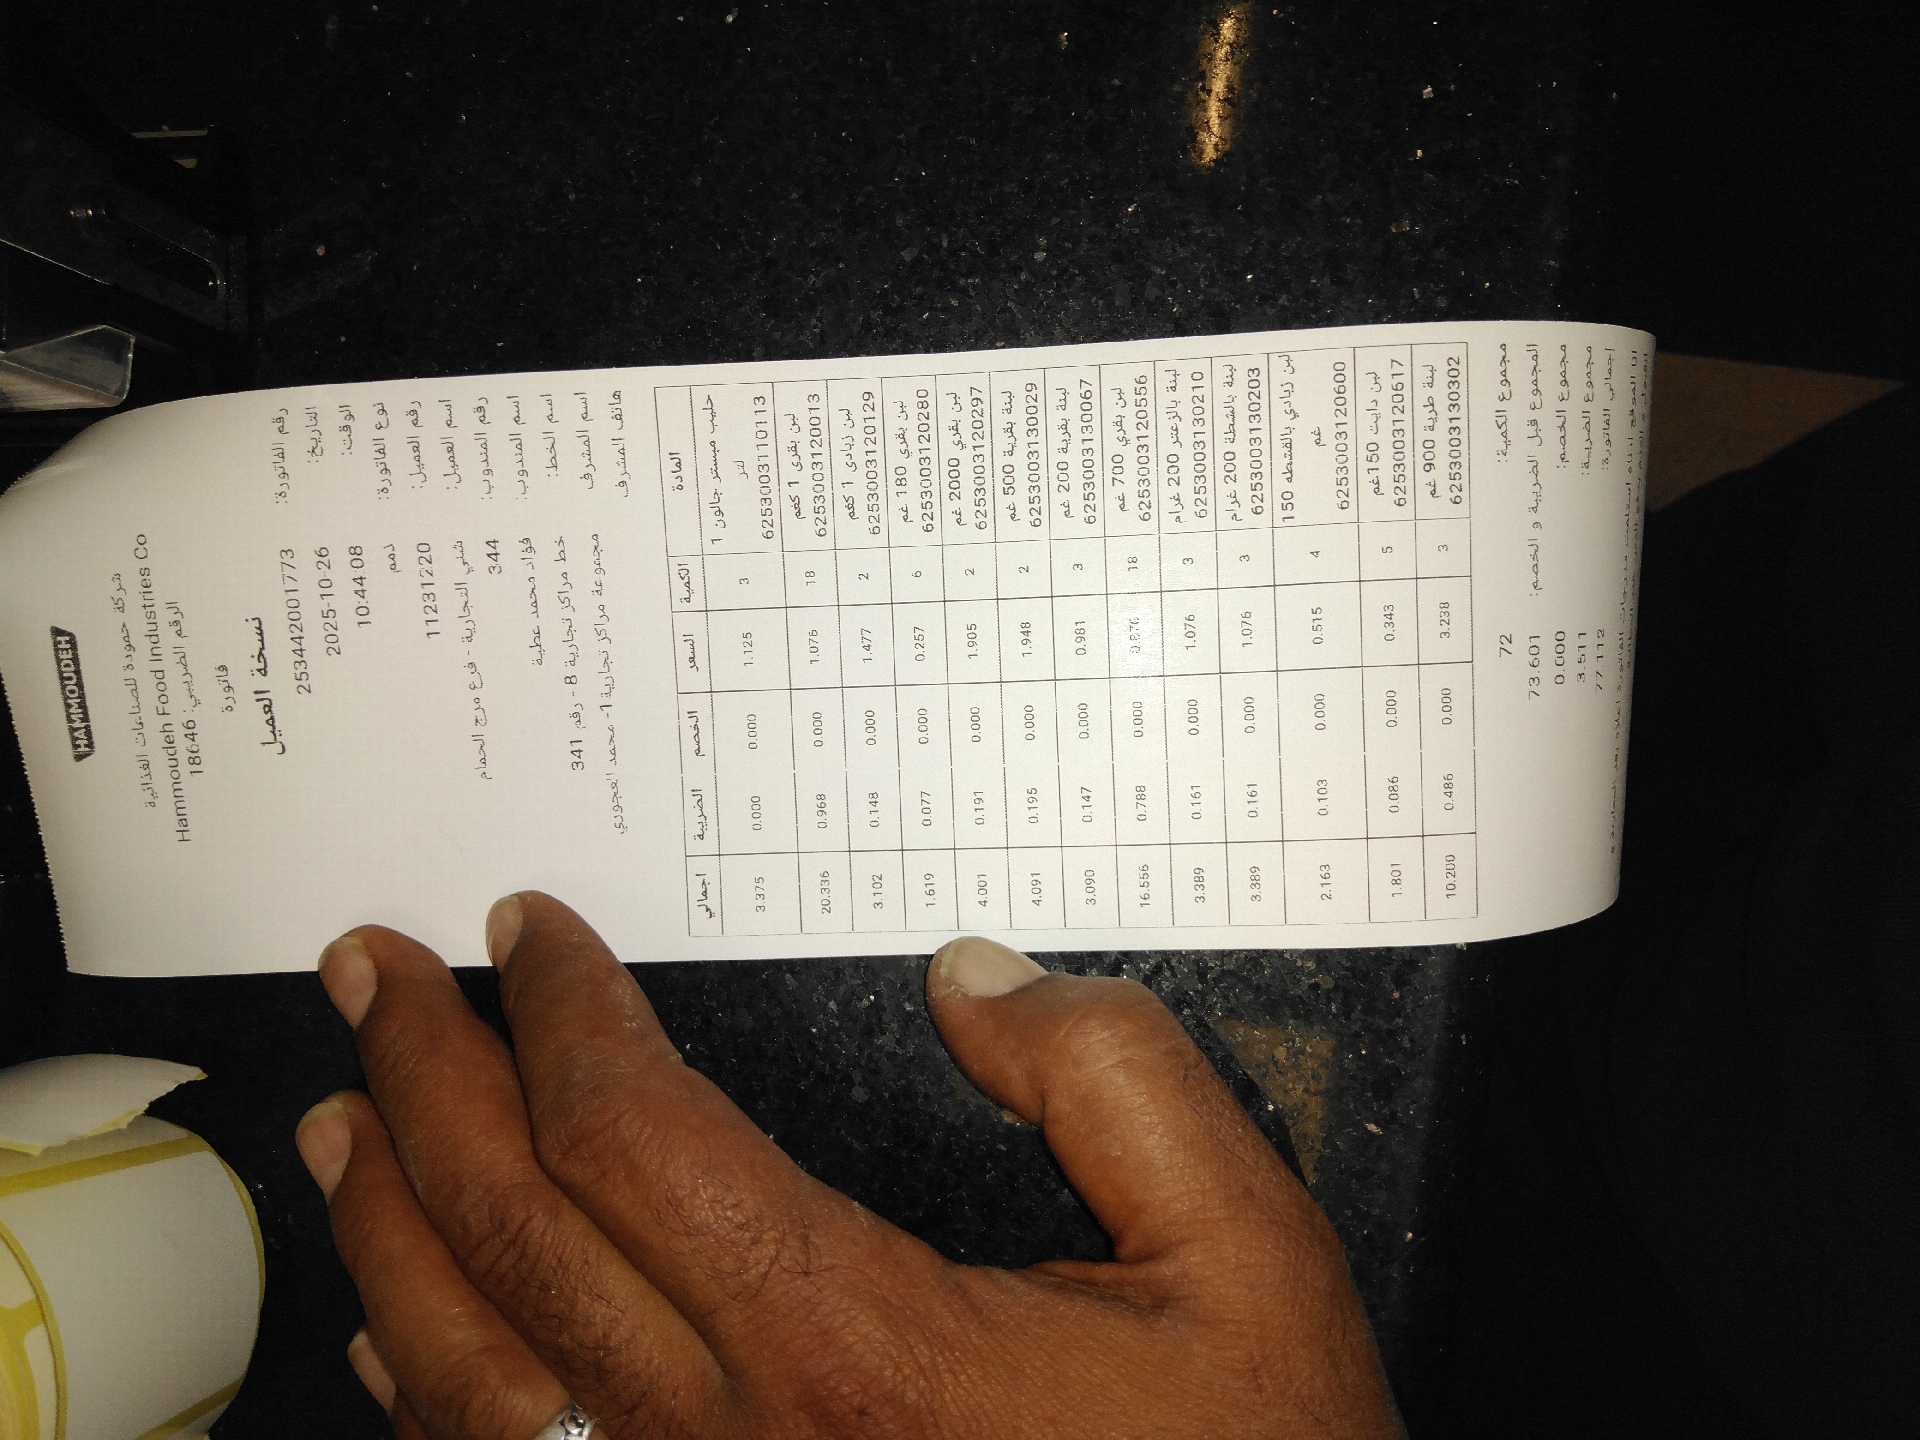 HAMMOUDEH
شركة حمودة للصناعات الغذائية
Hammoudeh Food Industries Co
الرقم الضريبي: 18646
فاتورة
نسخة العميل
رقم الفاتورة: 2534420001773
التاريخ: 2025-10-26
الوقت: 10:44:08
نوع الفاتورة: ذمم
رقم العميل: 11231220
اسم العميل: شلبي التجارية - فرع مرج الحمام
رقم المندوب: 344
اسم المندوب: فؤاد محمد عطية
اسم الخط: خط مراكز تجارية 8 - رقم 341
اسم المشرف مجموعة مراكز تجارية 1- محمد العجوري
هاتف المشرف
المادة الكمية السعر الخصم الضريبة اجمالي
حليب مبستر جالون 1 لتر 6253003110113 3 1.125 0.000 0.000 3.375
لبن بقري 1 كغم 6253003120013 18 1.076 0.000 0.968 20.336
لبن زبادي 1 كغم 6253003120129 2 1.477 0.000 0.148 3.102
لبن بقري 180 غم 6253003120280 6 0.257 0.000 0.077 1.619
لبن بقري 2000 غم 6253003120297 2 1.905 0.000 0.191 4.001
لبنة بقرية 500 غم 6253003130029 2 1.948 0.000 0.195 4.091
لبنة بقرية 200 غم 6253003130067 3 0.981 0.000 0.147 3.090
لبن بقري 700 غم 6253003120556 18 0.876 0.000 0.788 16.556
لبنة بالزعتر 200 غرام 6253003130210 3 1.076 0.000 0.161 3.389
لبنة بالشطة 200 غرام 6253003130203 3 1.076 0.000 0.161 3.389
لبن زبادي بالقشطه 150 غم 6253003120600 4 0.515 0.000 0.103 2.163
لبن دايت 150غم 6253003120617 5 0.343 0.000 0.086 1.801
لبنة طرية 900 غم 6253003130302 3 3.238 0.000 0.486 10.200
مجموع الكمية: 72
المجموع قبل الضريبة و الخصم: 73.601
مجموع الخصم: 0.000
مجموع الضريبة: 3.511
اجمالي الفاتورة: 77.112